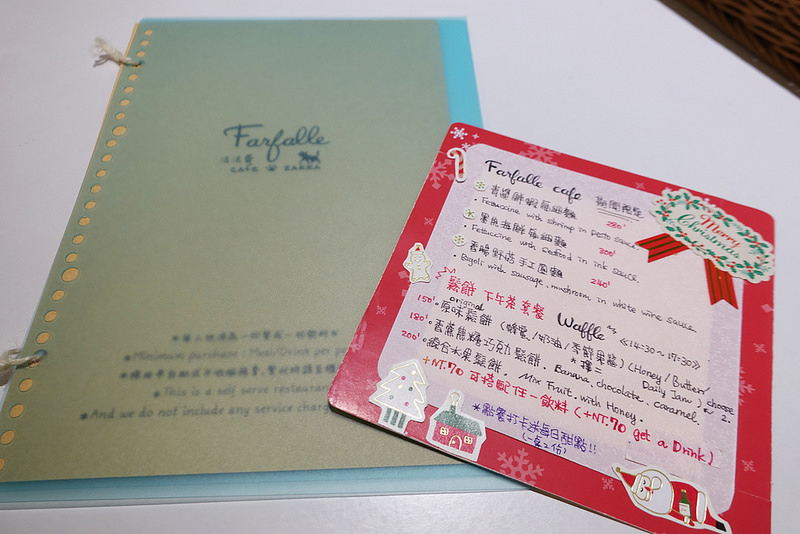 Farfalle
CAFE ZAKKA
Minimum purchase : Meal/Drink per
This is a self serve restaurant
And we do not include any service charg
Farfalle cafe
青醬鮮蝦扁細麵
280'
Fettuccine with shrimp in pesto sauce
墨魚海鮮扁細麵
300'
Fettuccine with seafood in ink sauce.
香腸野菇手工圓麵
240'
Bigoli with sausage, mushroom in white wine sauce
鬆餅 下午茶套餐 Waffle 《14:30~17:30》
150' original 原味鬆餅 (蜂蜜/奶油/季節果醬) (Honey/Butter/
*擇二 Daily Jam) choose 2.
180' 香蕉焦糖巧克力鬆餅. Banana, chocolate, caramel.
200' 綜合水果鬆餅. Mix Fruit. with Honey.
+NT.70 可搭配任一飲料 (+NT.70 get a Drink)
*點餐打卡送每日甜點!!
Merry
Christmas